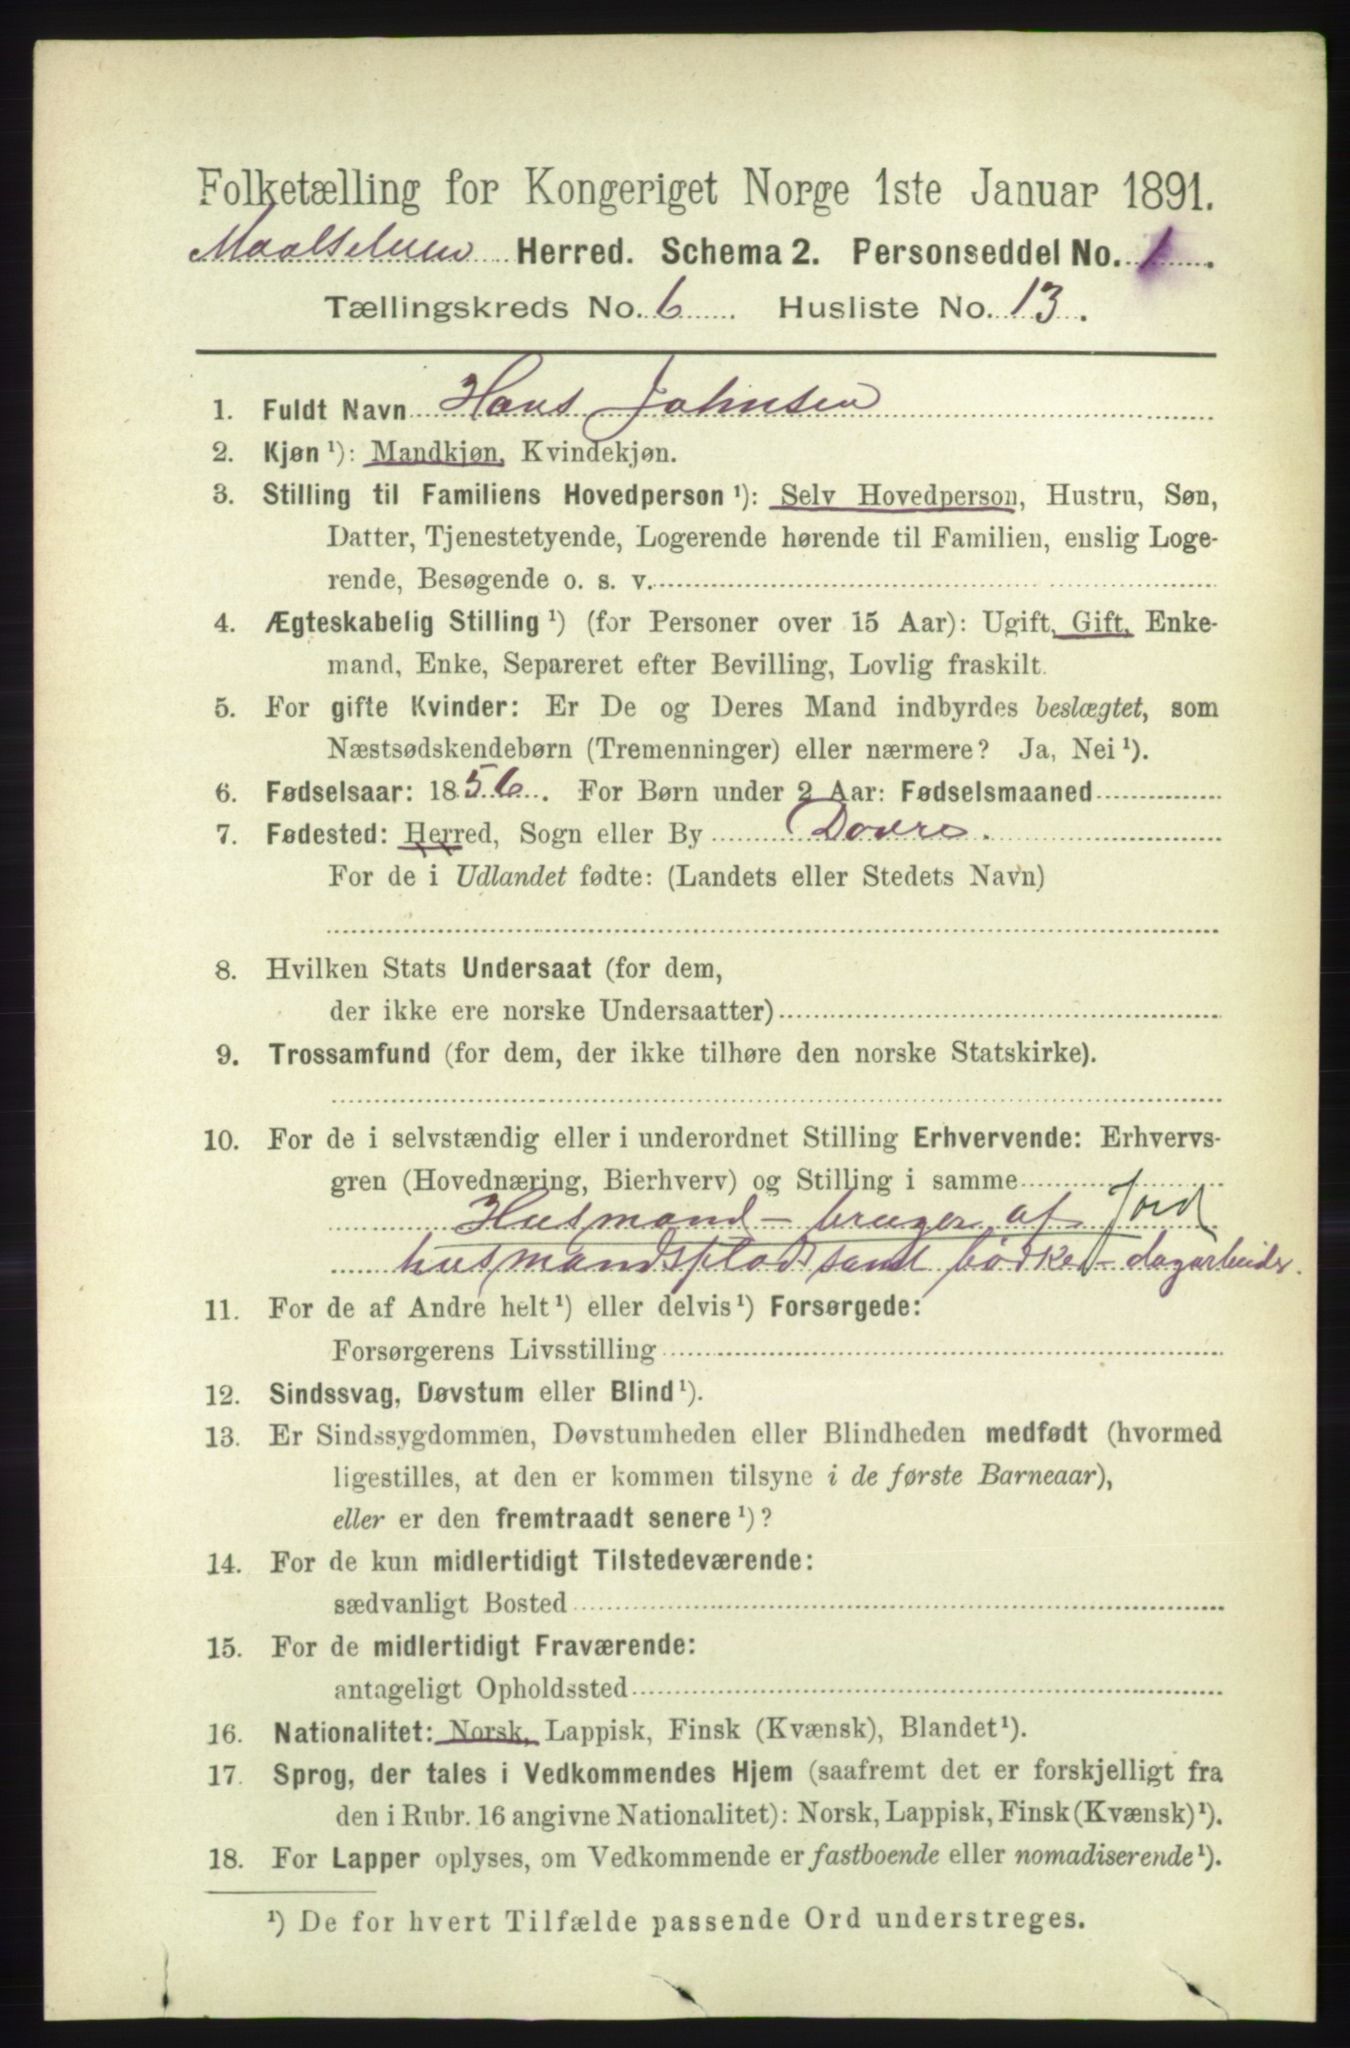 Folketælling for Kongeriget Norge 1ste Januar 1891.
Maalselven Herred. Schema 2. Personseddel No. 1.
Tællingskreds No. 6. Husliste No. 13.
1. Fuldt Navn Hans Johnsen
2. Kjøn ¹): Mandkjøn, Kvindekjøn.
3. Stilling til Familiens Hovedperson ¹): Selv Hovedperson, Hustru, Søn,
Datter, Tjenestetyende, Logerende hørende til Familien, enslig Loge-
rende, Besøgende o. s. v.
4. Ægteskabelig Stilling ¹) (for Personer over 15 Aar): Ugift, Gift, Enke-
mand, Enke, Separeret efter Bevilling, Lovlig fraskilt.
5. For gifte Kvinder: Er De og Deres Mand indbyrdes beslægtet, som
Næstsødskendebørn (Tremenninger) eller nærmere? Ja, Nei ¹).
6. Fødselsaar: 1856. For Børn under 2 Aar: Fødselsmaaned
7. Fødested: Herred, Sogn eller By Dovre.
For de i Udlandet fødte: (Landets eller Stedets Navn)
8. Hvilken Stats Undersaat (for dem,
der ikke ere norske Undersaatter)
9. Trossamfund (for dem, der ikke tilhøre den norske Statskirke).
10. For de i selvstændig eller i underordnet Stilling Erhvervende: Erhvervs-
gren (Hovednæring, Bierhverv) og Stilling i samme
Husmand - bruger af Jord
husmandsplads samt bødker - dagarbeider.
11. For de af Andre helt ¹) eller delvis ¹) Forsørgede:
Forsørgerens Livsstilling
12. Sindssvag, Døvstum eller Blind ¹).
13. Er Sindssygdommen, Døvstumheden eller Blindheden medfødt (hvormed
ligestilles, at den er kommen tilsyne i de første Barneaar),
eller er den fremtraadt senere ¹)?
14. For de kun midlertidigt Tilstedeværende:
sædvanligt Bosted
15. For de midlertidigt Fraværende:
antageligt Opholdssted
16. Nationalitet: Norsk, Lappisk, Finsk (Kvænsk), Blandet ¹).
17. Sprog, der tales i Vedkommendes Hjem (saafremt det er forskjelligt fra
den i Rubr. 16 angivne Nationalitet): Norsk, Lappisk, Finsk (Kvænsk) ¹).
18. For Lapper oplyses, om Vedkommende er fastboende eller nomadiserende ¹).
¹) De for hvert Tilfælde passende Ord understreges.